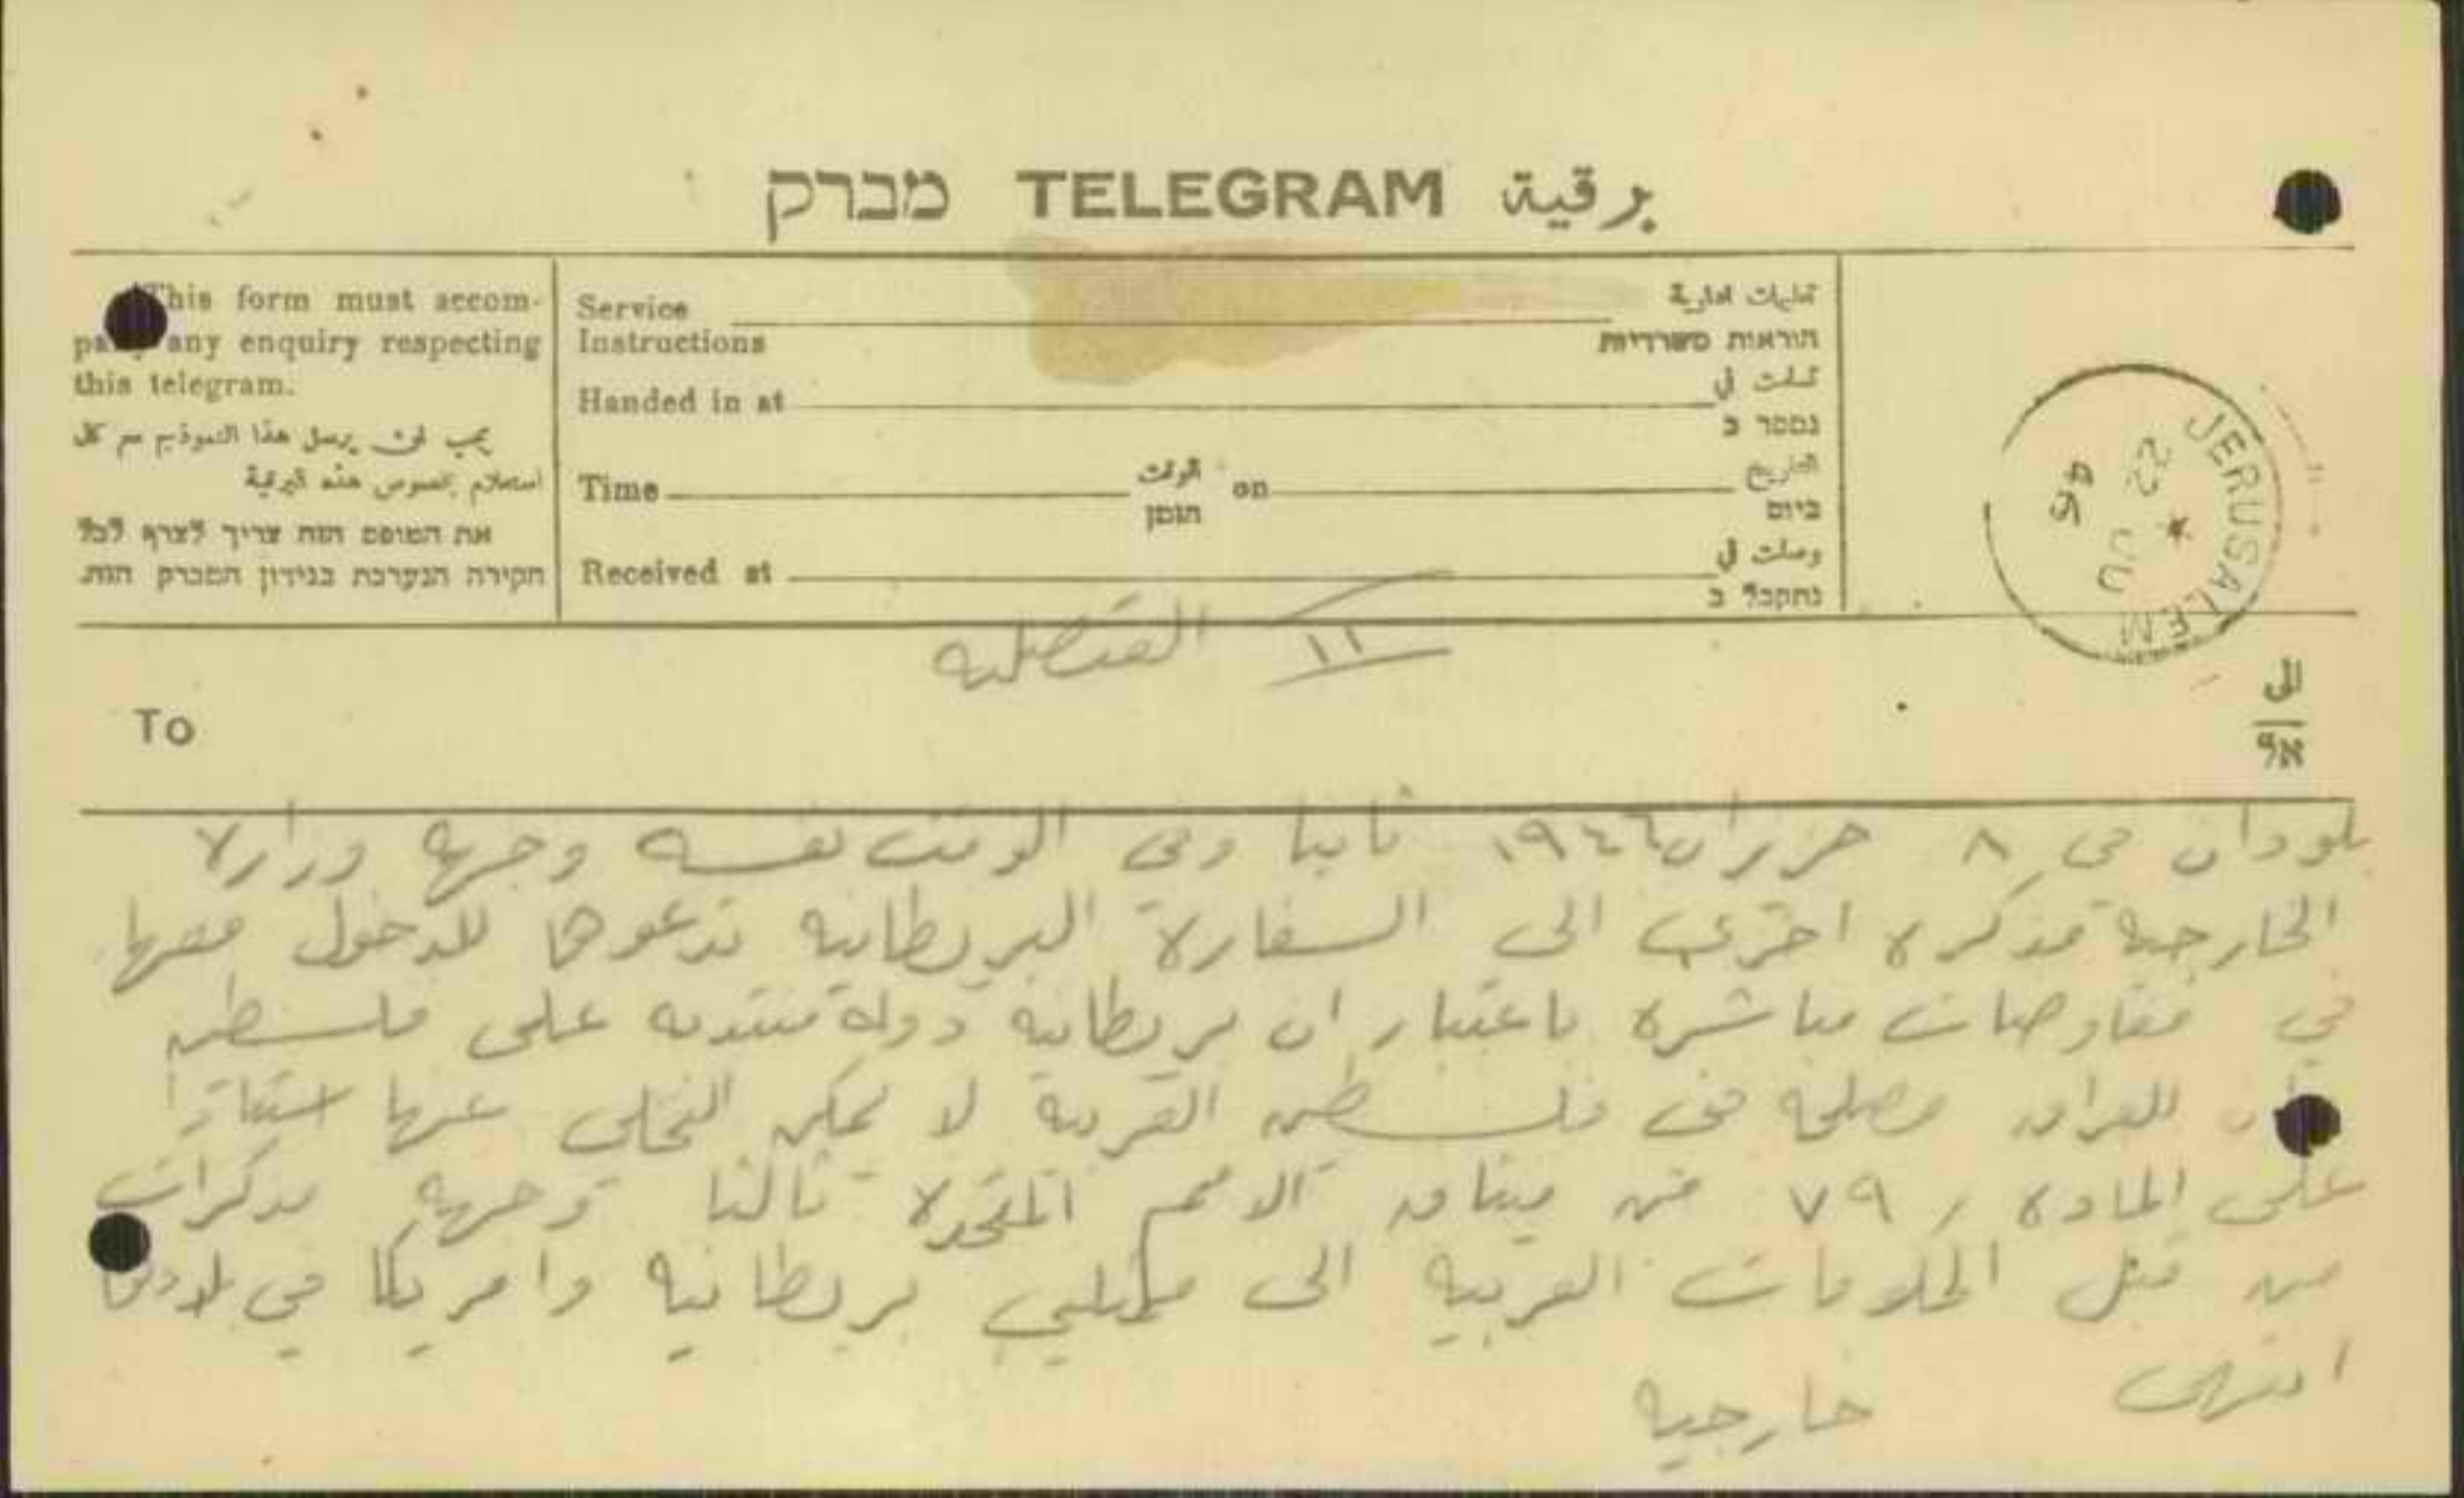 מברק TELEGRAM برقية
This form must accom-
pany any enquiry respecting
this telegram.
يجب ان يرسل هذا النموذج مع كل
استعلام بخصوص هذه البرقية
את הטופס הזה צריך לצרף לכל
חקירה הנערכת בנידון המברק הזה.
Service Instructions تعليمات ادارية
הוראות משרדיות
Handed in at سلمت في
נמסר ב
Time الوقت הזמן on التاريخ
ביום
Received at وصلت في
נתקבל ב
JERUSALEM
22 JU
46
١١ القنصليه
To الى
אל
بلودان في ٨ حزيران ١٩٤٦ ثانيا وفي الوقت نفسه وجهة وزارة
الخارجية مذكره اخرى الى السفارة البريطانيه تدعوها للدخول معها
في مفاوضات مباشره باعتبار ان بريطانيه دولة منتدبه على فلسطين
للعراق مصلحه في فلسطين العربة لا يمكن التخلي عنها استنادا
على المادة ٧٩ من ميثاق الامم المتحدة ثالثا توجهة مذكرات
من قبل الحكومات العربيه الى ممثلي بريطانيه وامريكا في بلادها
انتهى خارجيه